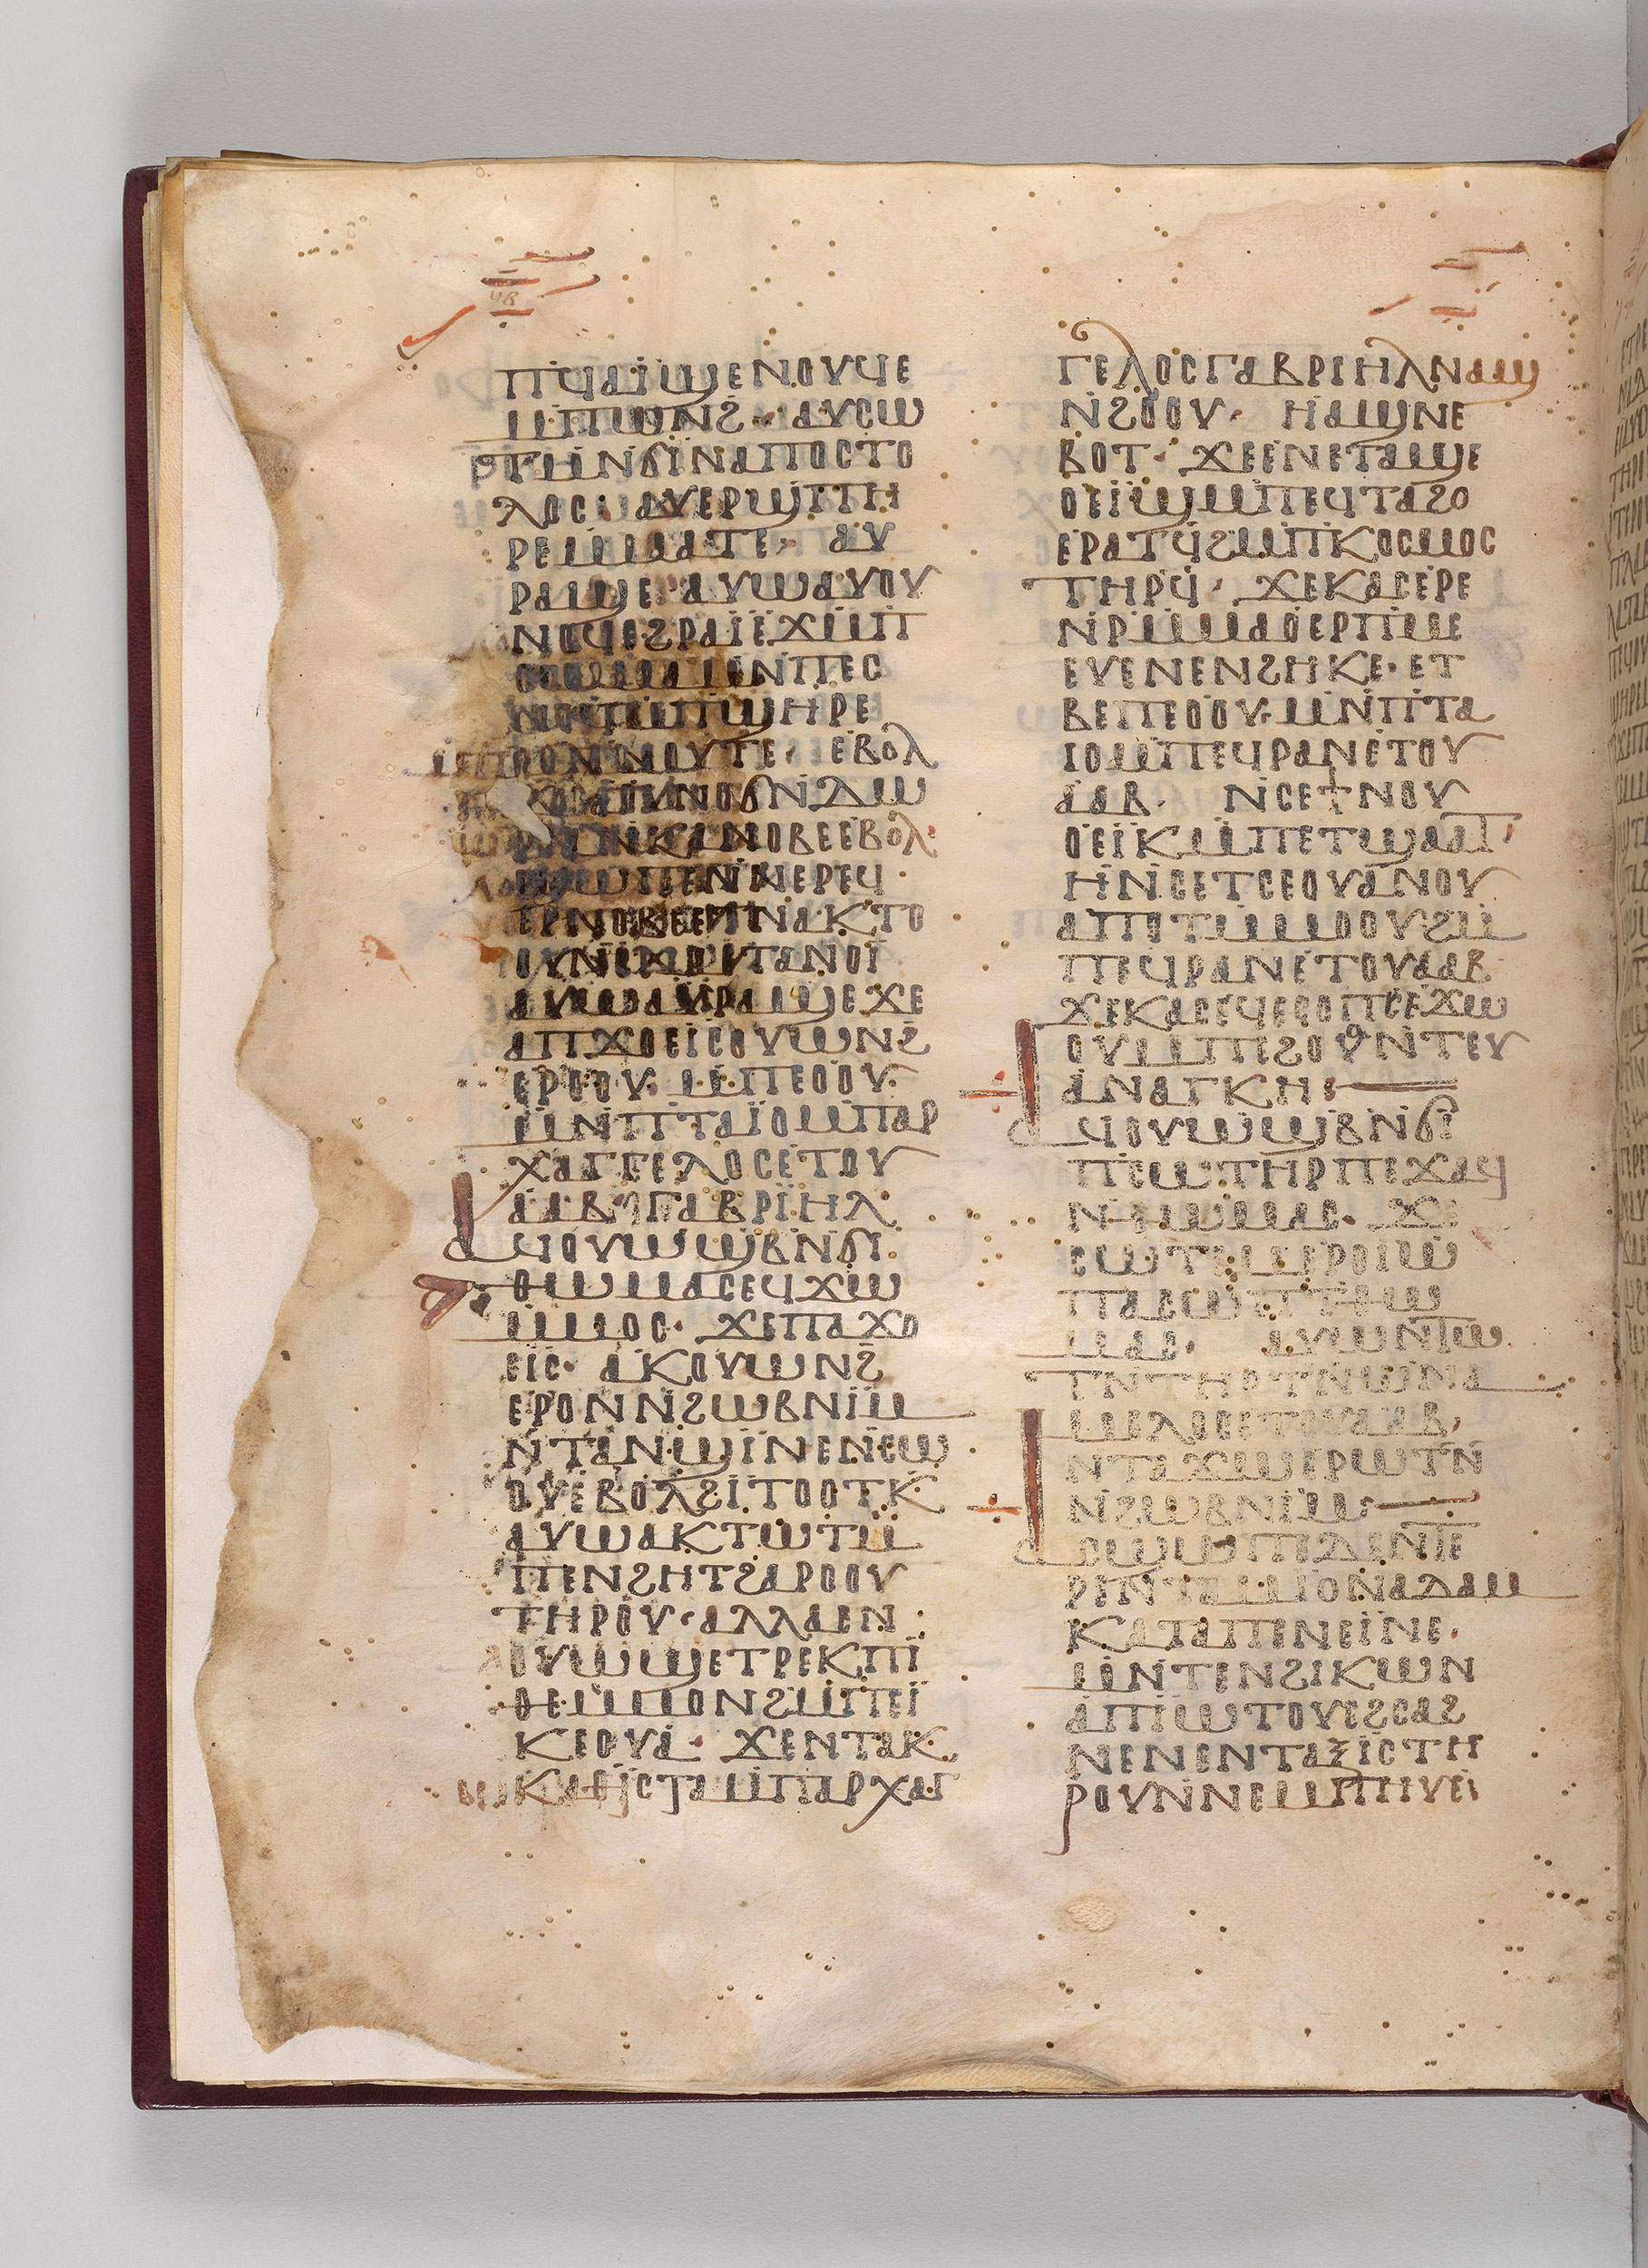 ϤⲂ
ⲠϤⲀⲒϢⲈⲚⲞⲨϤⲈ
ⲘⲠⲰⲚϨ· ⲀⲨⲤⲰ
ⲦⲘⲚϬⲒⲚⲀⲠⲞⲤⲦⲞ
ⲖⲞⲤ· ⲀⲨⲈⲢϢⲠⲎ
ⲢⲈⲘⲘⲀⲦⲈ· ⲀⲨ
ⲢⲀϢⲈ· ⲀⲨⲰⲀⲨⲞⲨ
ⲚⲞϤⲈϨⲢⲀⲒⲈϪⲘⲠ
ⲤⲰⲘⲀ ⲘⲚⲠⲈⲤ
ⲚⲞϤⲘⲠϢⲎⲢⲈ
ⲘⲠⲚⲞⲨⲦⲈ· ⲈⲂⲞⲖ
ⲚⲞϬⲚⲆⲰ
ⲔⲀⲚⲞⲂⲈⲈⲂⲞⲖ·
ⲚⲢⲈϤ
ⲈⲢⲚⲞⲂⲈⲈⲦⲚⲀⲔⲦⲞ
ⲞⲨⲚⲤⲈⲘⲈⲦⲀⲚⲞⲒ
ⲀⲨⲰⲀⲨⲢⲀϢⲈϪⲈ
ⲀⲠϪⲞⲈⲒⲤⲞⲨⲰⲚϨ
ⲈⲢⲞⲞⲨ· ⲘⲠⲈⲞⲞⲨ·
ⲘⲚⲠⲦⲀⲒⲞⲘⲠⲀⲢ
ⲬⲀⲄⲄⲈⲖⲞⲤⲈⲦⲞⲨ
ⲀⲀⲂ ⲄⲀⲂⲢⲒⲎⲖ
ⲀϤⲞⲨⲰϢⲂⲚϬⲒ
ⲐⲰⲘⲀⲤⲈϤϪⲰ
ⲘⲘⲞⲤ· ϪⲈⲠⲀϪⲞ
ⲈⲒⲤ· ⲀⲔⲞⲨⲰⲚϨ
ⲈⲢⲞⲚⲚϨⲰⲂⲚⲒⲘ
ⲚⲦⲀⲚϢⲒⲚⲈⲚⲤⲰ
ⲞⲨⲈⲂⲞⲖϨⲒⲦⲞⲞⲦⲔ
ⲀⲨⲰⲀⲔⲦⲰⲦⲘ
ⲠⲈⲚϨⲎⲦϨⲀⲢⲞⲞⲨ
ⲦⲎⲢⲞⲨ·ⲀⲖⲖⲀⲈⲚ
ⲞⲨⲰϢⲈⲦⲢⲈⲔⲠⲒ
ⲐⲈⲘⲘⲞⲚϨⲘⲠⲈⲒ
ⲔⲈⲞⲨⲀ· ϪⲈⲚⲦⲀⲔ
ⲔⲀⲐⲒⲤⲦⲀⲘⲠⲀⲢⲬⲀⲄ
ⲄⲈⲖⲞⲤⲄⲀⲂⲢⲒⲎⲖⲚⲀϢ
ⲚϨⲞⲞⲨ· ⲎⲀϢⲚⲈ
ⲂⲞⲦ· ϪⲈⲈⲚⲈⲦⲀϢⲈ
ⲞⲈⲒϢⲘⲠⲈϤⲦⲀϨⲞ
ⲈⲢⲀⲦϤϨⲘⲠⲔⲞⲤⲘⲞⲤ
ⲦⲎⲢϤ· ϪⲈⲔⲀⲤⲈⲢⲈ
ⲚⲢⲘⲘⲀⲞⲈⲢⲠⲘⲈ
ⲈⲨⲈⲚⲈⲚϨⲎⲔⲈ·ⲈⲦ
ⲂⲈⲠⲈⲞⲞⲨ·ⲘⲚⲠⲦⲀ
ⲒⲞⲘⲠⲈϤⲢⲀⲚⲈⲦⲞⲨ
ⲀⲀⲂ· ⲚⲤⲈϮⲚⲞⲨ
ⲞⲈⲒⲔⲘⲠⲈⲦϢⲀⲀⲦ·
ⲎⲚⲤⲈⲦⲤⲈⲞⲨⲀⲚⲞⲨ
ⲀⲠⲞⲦⲘⲘⲞⲞⲨϨⲘ
ⲠⲈϤⲢⲀⲚⲈⲦⲞⲨⲀⲀⲂ
ϪⲈⲔⲀⲤⲈϤⲈⲤⲞⲠⲤⲈϪⲰ
ⲞⲨⲘⲠⲈϨⲞⲞⲨⲚⲦⲈⲨ
ⲀⲚⲀⲄⲔⲎ:
ⲀϤⲞⲨⲰϢⲂⲚϬⲒ
ⲠⲤⲰⲦⲎⲢⲠⲈϪⲀϤ
ⲚⲐⲰⲘⲀⲤ· ϪⲈ
ⲤⲰⲦⲘⲈⲢⲞⲒⲰ
ⲠⲀⲤⲰⲦⲠⲐⲰ
ⲘⲀⲤ· ⲀⲨⲰⲚⲦⲰ
ⲦⲚⲦⲎⲢⲦⲚⲰⲚⲀ
ⲘⲈⲖⲞⲤⲈⲦⲞⲨⲀⲀⲂ·
ⲚⲦⲀϪⲰⲈⲢⲰⲦⲚ
ⲚϨⲰⲂⲚⲒⲘ·
ⲀⲤϢⲰⲠⲈⲆⲈⲚⲦⲈ
ⲢⲈⲚⲦⲀⲘⲒⲞⲚⲀⲆⲀⲘ
ⲔⲀⲦⲀⲠⲈⲚⲈⲒⲚⲈ·
ⲘⲚⲦⲈⲚϨⲒⲔⲰⲚ
ⲀⲠⲒⲰⲦⲞⲨⲈϨⲤⲀϨ
ⲚⲈⲚⲈⲚⲦⲀⲜⲒⲤⲦⲎ
ⲢⲞⲨⲚⲚⲈⲘⲠⲎⲨⲈ